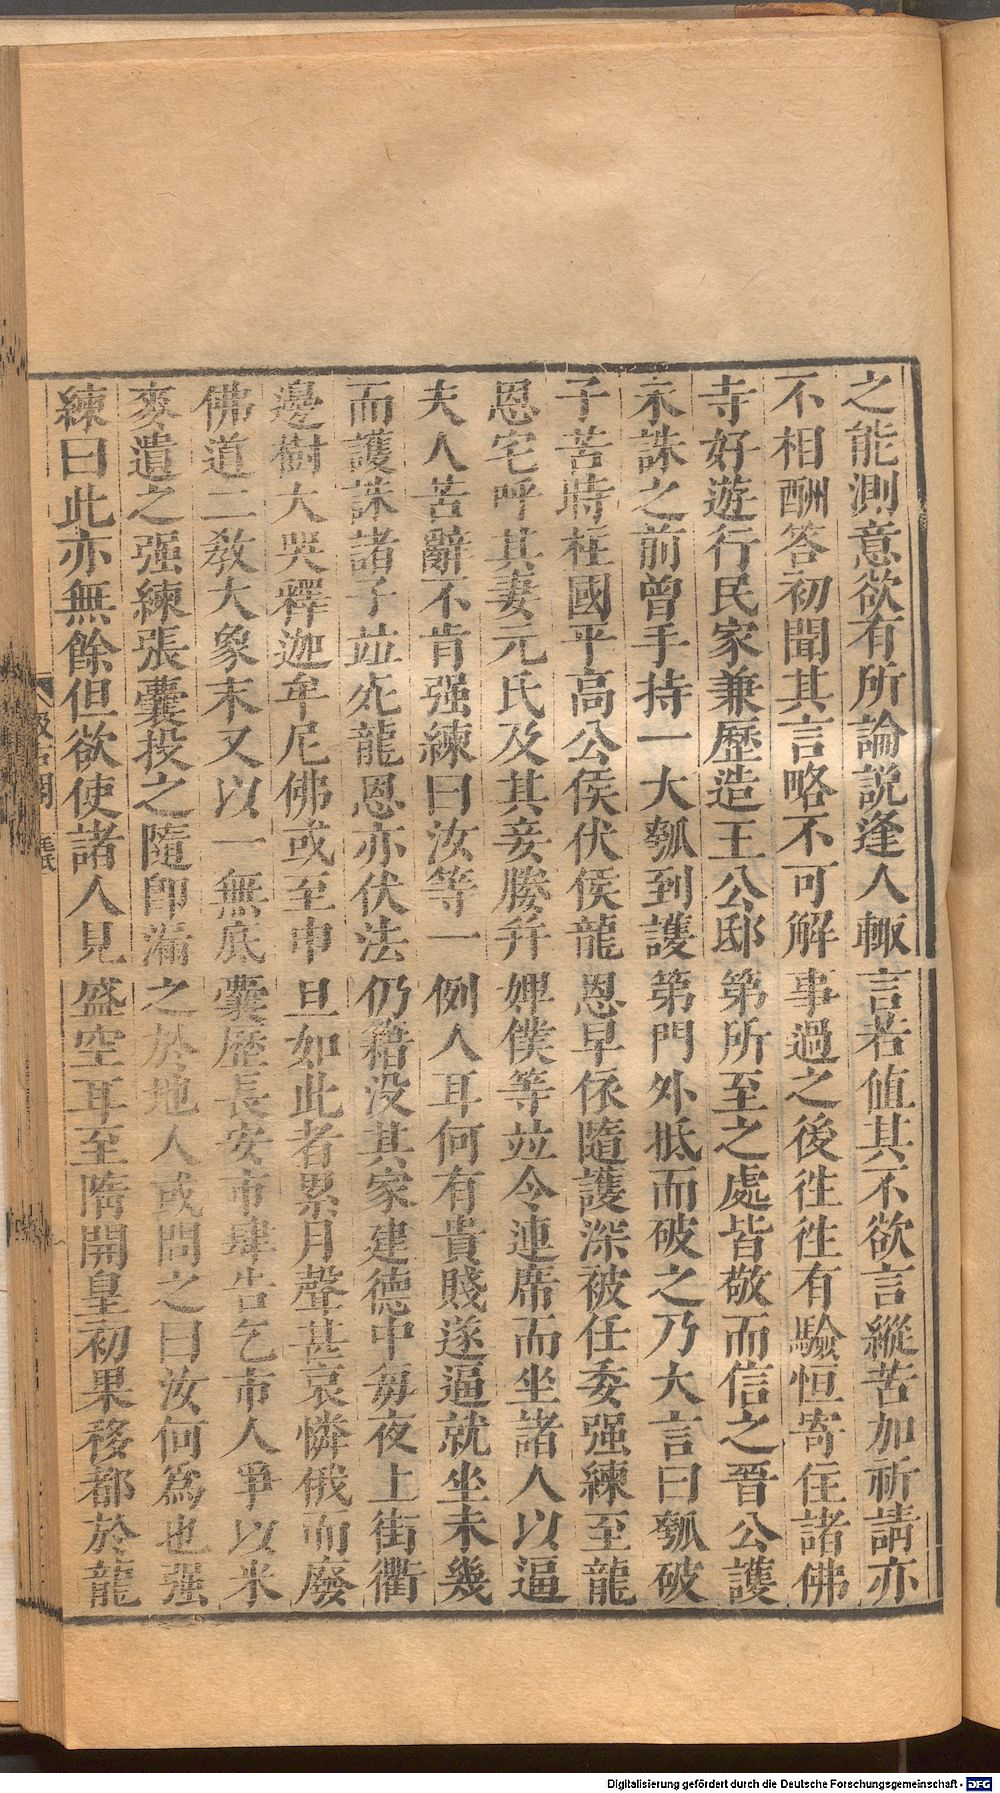 之能測意欲有所論說逢人輙言若值其不欲言縱苦加祈請亦
不相酬答初聞其言略不可解事過之後徃徃有驗恒寄住諸佛
寺好遊行民家兼歷造王公邸第所至之處皆敬而信之晉公護
未誅之前曾手持一大瓠到護第門外抵而破之乃大言曰瓠破
子苦時柱國平高公侯伏侯龍恩早依隨護深被任委强練至龍
恩宅呼其妻元氏及其妾媵并婢僕等竝令連席而坐諸人以逼
夫人苦辭不肯强練曰汝等一例人耳何有貴賤遂逼就坐未幾
而護誅諸子竝死龍恩亦伏法仍籍没其家建德中毎夜上街衢
邊樹大哭釋迦牟尼佛或至申旦如此者累月聲甚哀憐俄而廢
佛道二敎大象末又以一無底囊歷長安市肆告乞市人爭以米
麥遺之强練張囊投之隨卽漏之於地人或問之曰汝何爲也强
練曰此亦無餘但欲使諸人見盛空耳至隋開皇初果移都於龍
汲古閣
毛氏
Digitalisierung gefördert durch die Deutsche Forschungsgemeinschaft - DFG